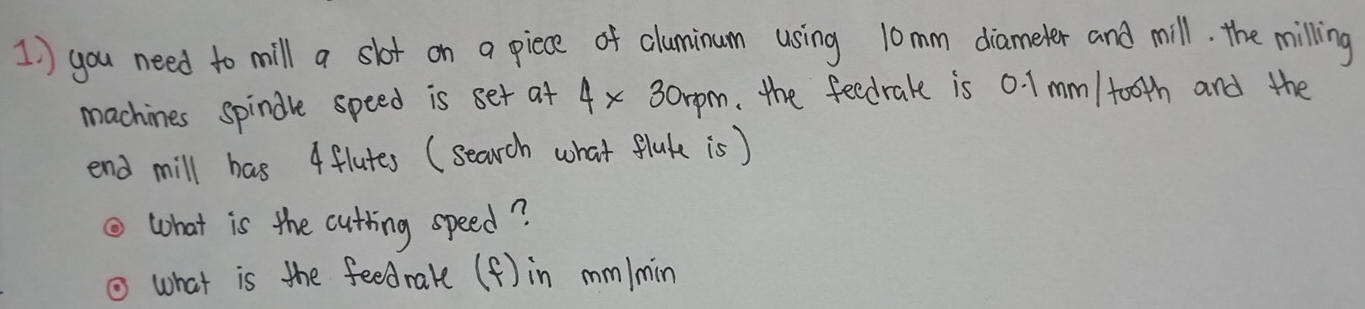 1.) you need to mill a slot on a piece of cluminum using 10 mm diameter and mill. the milling
machines spindle speed is set at 4 x 30rpm. the feedrate is 0.1 mm/tooth and the
end mill has 4 flutes (search what flute is)
What is the cutting speed?
What is the feedrate (f) in mm/min